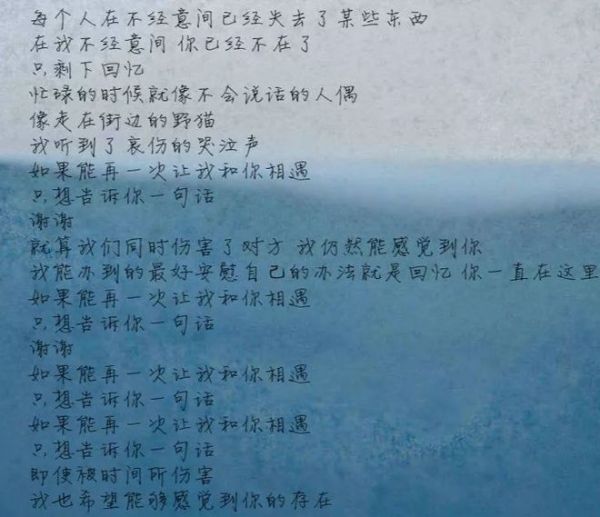 每个人在不经意间已经失去了某些东西
在我不经意间 你已经不在了
只剩下回忆
忙碌的时候就像不会说话的人偶
像走在街边的野猫
我听到了哀伤的哭泣声
如果能再一次让我和你相遇
只想告诉你一句话
谢谢
就算我们同时伤害了对方 我仍然能感觉到你
我能办到的最好安慰自己的办法就是回忆 你一直在这里
如果能再一次让我和你相遇
只想告诉你一句话
谢谢
如果能再一次让我和你相遇
只想告诉你一句话
如果能再一次让我和你相遇
只想告诉你一句话
即使被时间所伤害
我也希望能够感觉到你的存在